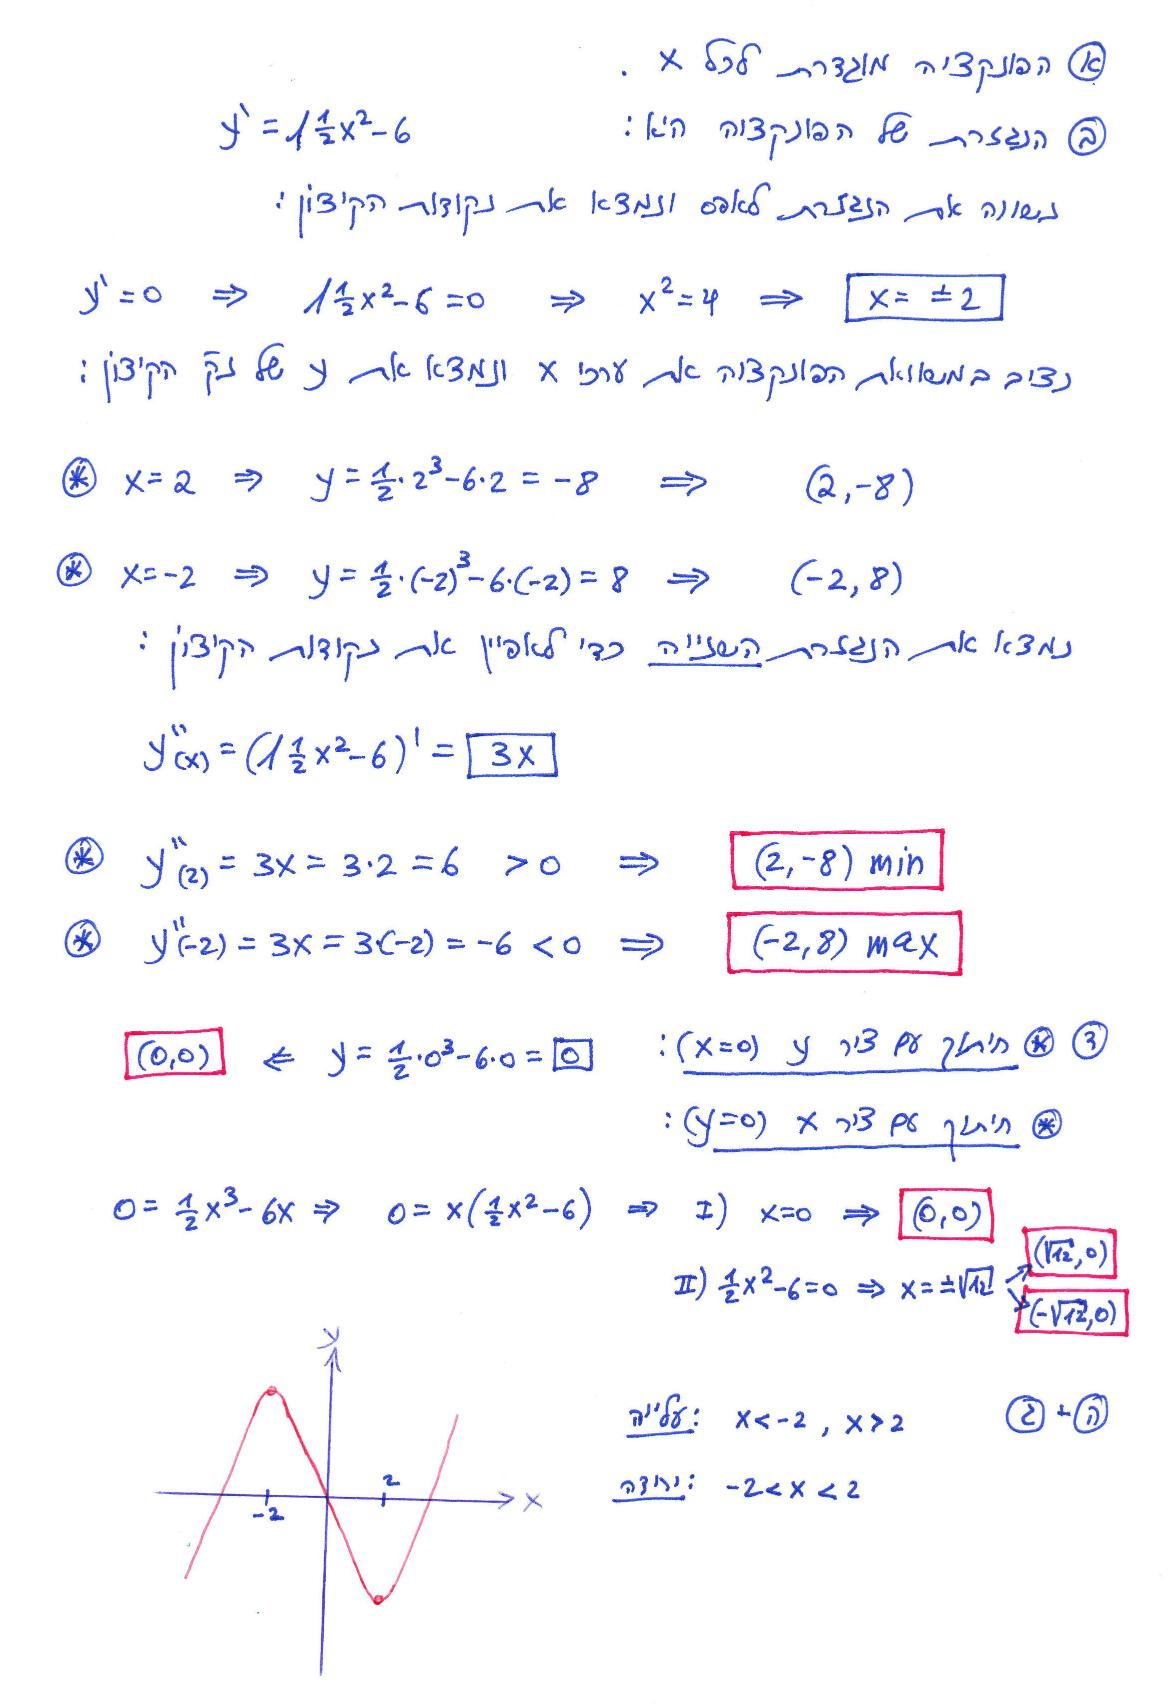 א הפונקציה מוגדרת לכל x .
ב הנגזרת של הפונקציה היא : y' = 1½x² - 6
נשווה את הנגזרת לאפס ונמצא את נקודות הקיצון :
y' = 0 ⇒ 1½x² - 6 = 0 ⇒ x² = 4 ⇒ x = ±2
נציב במשוואת הפונקציה את ערכי x ונמצא את y של נק' הקיצון :
⊛ x = 2 ⇒ y = ½·2³ - 6·2 = -8 ⇒ (2,-8)
⊛ x = -2 ⇒ y = ½·(-2)³ - 6·(-2) = 8 ⇒ (-2,8)
נמצא את הנגזרת השנייה כדי לאפיין את נקודות הקיצון :
y''(x) = (1½x² - 6)' = 3x
⊛ y''(2) = 3x = 3·2 = 6 > 0 ⇒ (2,-8) min
⊛ y''(-2) = 3x = 3(-2) = -6 < 0 ⇒ (-2,8) max
ד ⊛ חיתוך עם ציר y (x=0) : y = ½·0³ - 6·0 = 0 ⇐ (0,0)
⊛ חיתוך עם ציר x (y=0) :
0 = ½x³ - 6x ⇒ 0 = x(½x² - 6) ⇒ I) x = 0 ⇒ (0,0)
II) ½x² - 6 = 0 ⇒ x = ±√12 (√12,0)
(-√12,0)
ג + ה
עלייה : x < -2 , x > 2
ירידה : -2 < x < 2
y
x
-2
2